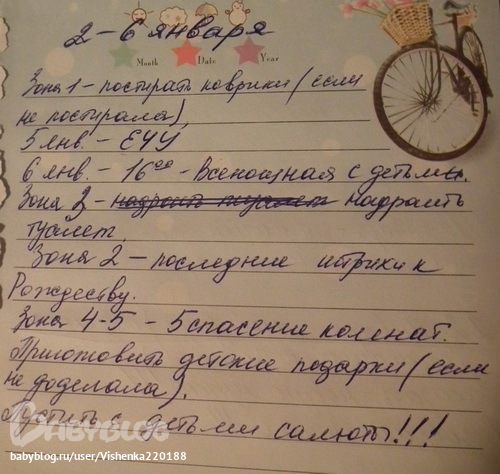 2-6 января
Month Date Year
Зона 1 - постирать коврики (если
не постирала),
5 янв. - ЕЧУ
6 янв. - 16⁰⁰ - Всенощная с детьми.
Зона 2 - надраить туалет надраить
туалет.
Зона 2 - последние штрихи к
Рождеству.
Зона 4-5 - 5 спасение комнат.
Приготовить детские подарки (если
не доделала).
Пустить с детьми салюты!!!
BABYBLOG
babyblog.ru/user/Vishenka220188